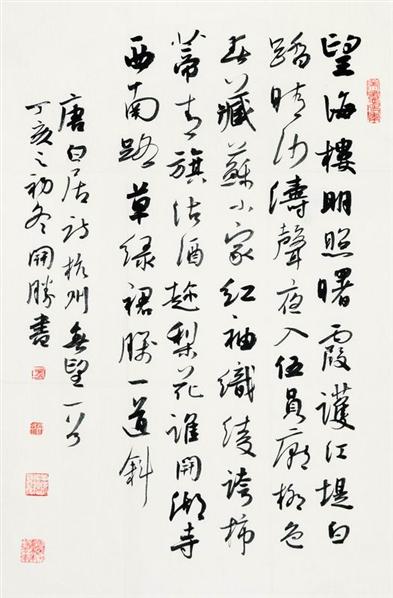 望海樓明照曙霞護江堤白
踏晴沙濤聲夜入伍員廟柳色
春藏蘇小家紅袖織綾誇柿
蒂青旗沽酒趂梨花誰開湖寺
西南路草绿裙腰一道斜
唐白居詩杭州春望一首
丁亥之初冬開勝書